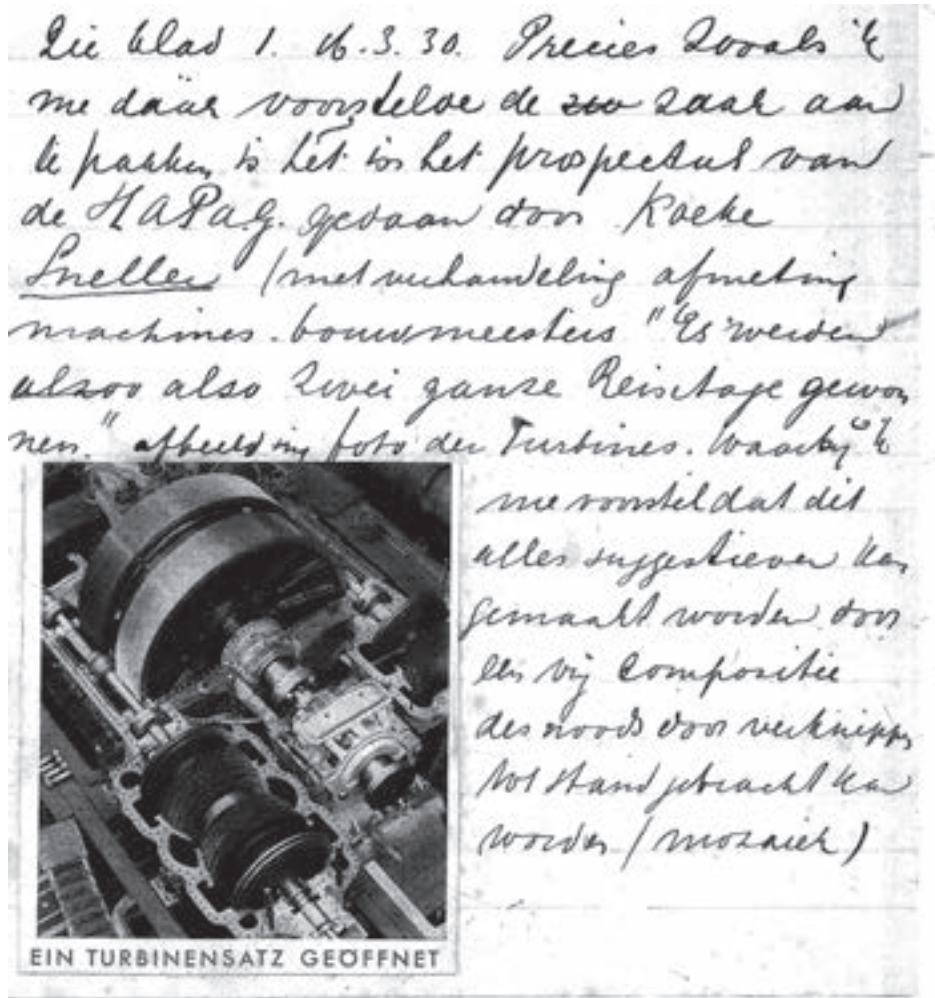 Zie blad 1. 16.3.30. Precies zooals 'k
me daar voorstelde de zaak aan
te pakken, is het in het prospectus van
de HAPaG. gedaan door
Sneller (met verhandeling afmeting
machines. bouwmeesters "Es werden
alzoo also zwei ganze Reisetage gewon
nen." afbeelding foto der Turbines. waarbij 'k
me voorstel dat dit
alles suggestiever kan
gemaakt worden door
een vrij compositie
des noods door verknippen
tot stand gebracht kan
worden (mozaiek)
EIN TURBINENSATZ GEÖFFNET